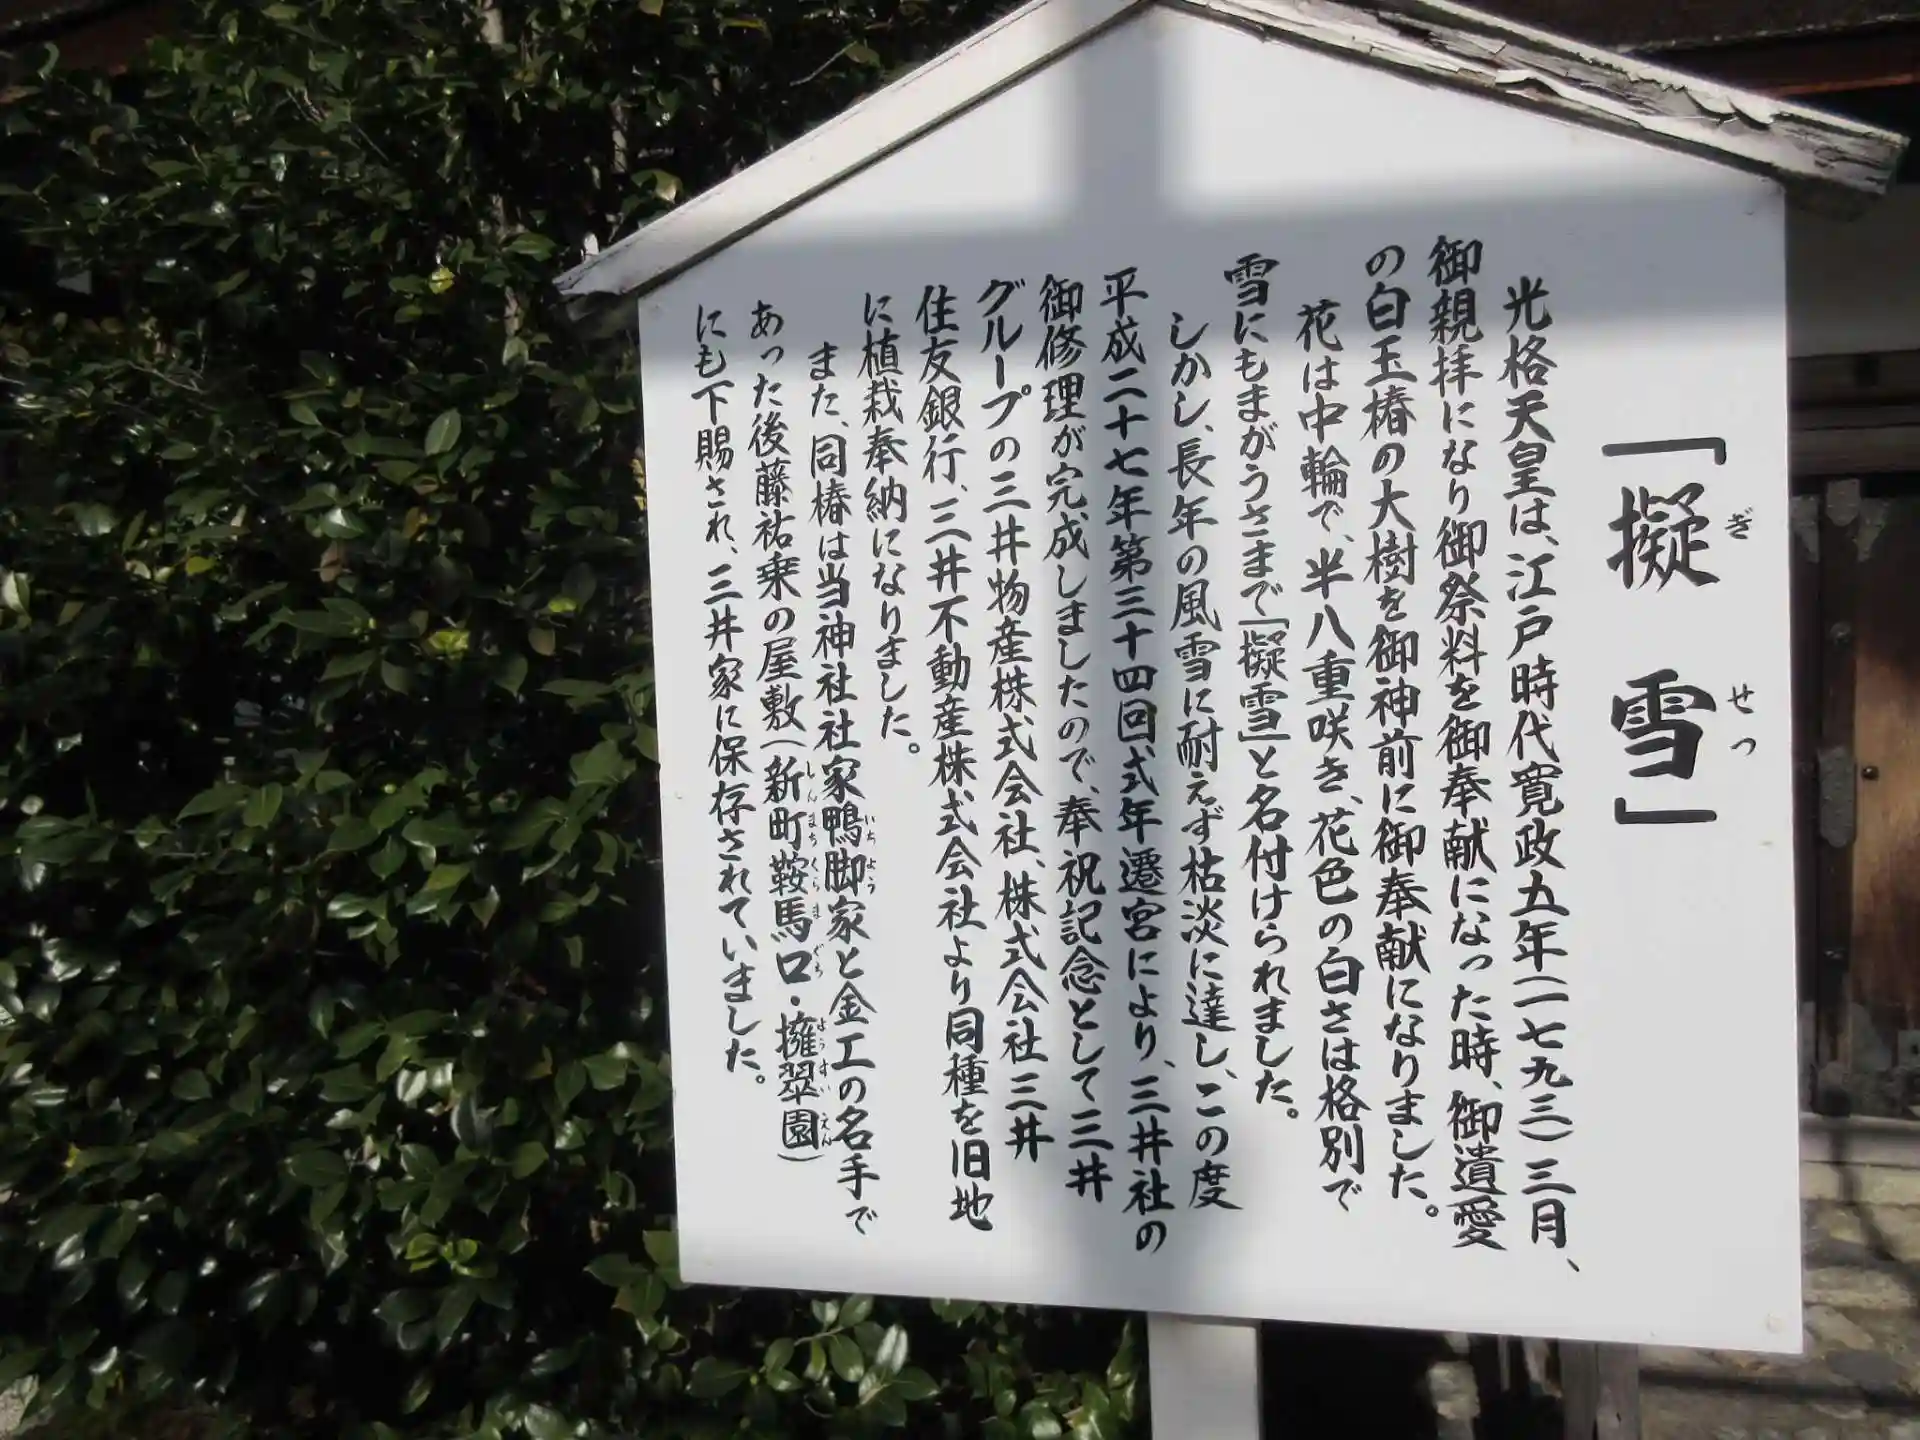 「擬雪」
ぎ せつ
光格天皇は、江戸時代寛政五年(一七九三)三月、
御親拝になり御祭料を御奉献になった時、御遺愛
の白玉椿の大樹を御神前に御奉献になりました。
花は中輪で、半八重咲き、花色の白さは格別で
雪にもまがうさまで「擬雪」と名付けられました。
しかし、長年の風雪に耐えず枯淡に達し、この度
平成二十七年第三十四回式年遷宮により、三井社の
御修理が完成しましたので、奉祝記念として三井
グループの三井物産株式会社、株式会社三井
住友銀行、三井不動産株式会社より同種を旧地
に植栽奉納になりました。
また、同椿は当神社社家鴨脚家と金工の名手で
いち よう
あった後藤祐乗の屋敷(新町鞍馬口・擁翠園)
しんまちくらまぐち ようすいえん
にも下賜され、三井家に保存されていました。